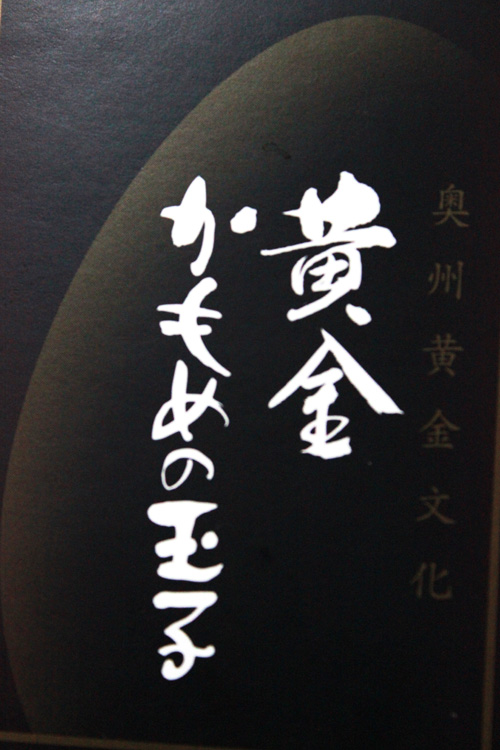 奥州黄金文化
黄金
かもめの玉子